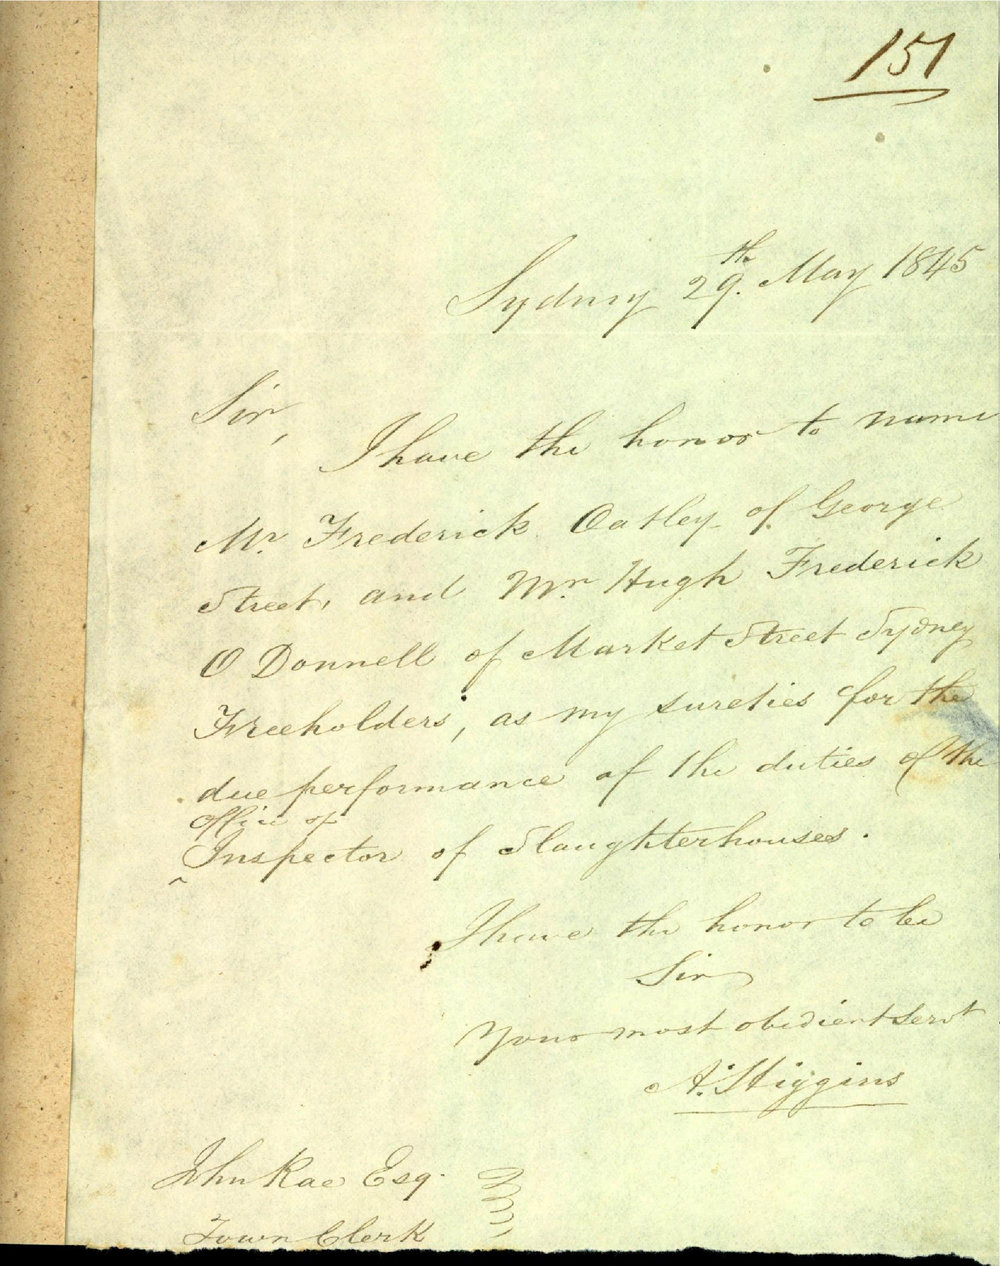 151
Sydney 29th. May 1845
Sir,
I have the honor to name
Mr. Frederick Oatley of George
Street, and Mr. Hugh Frederick
O Donnell of Market Street Sydney
Freeholders, as my sureties for the
due performance of the duties of the
office of
^ Inspector of Slaughterhouses.
I have the honor to be
Sir
Your most obedient Servt
A. Higgins
John Rae Esq.
Town Clerk